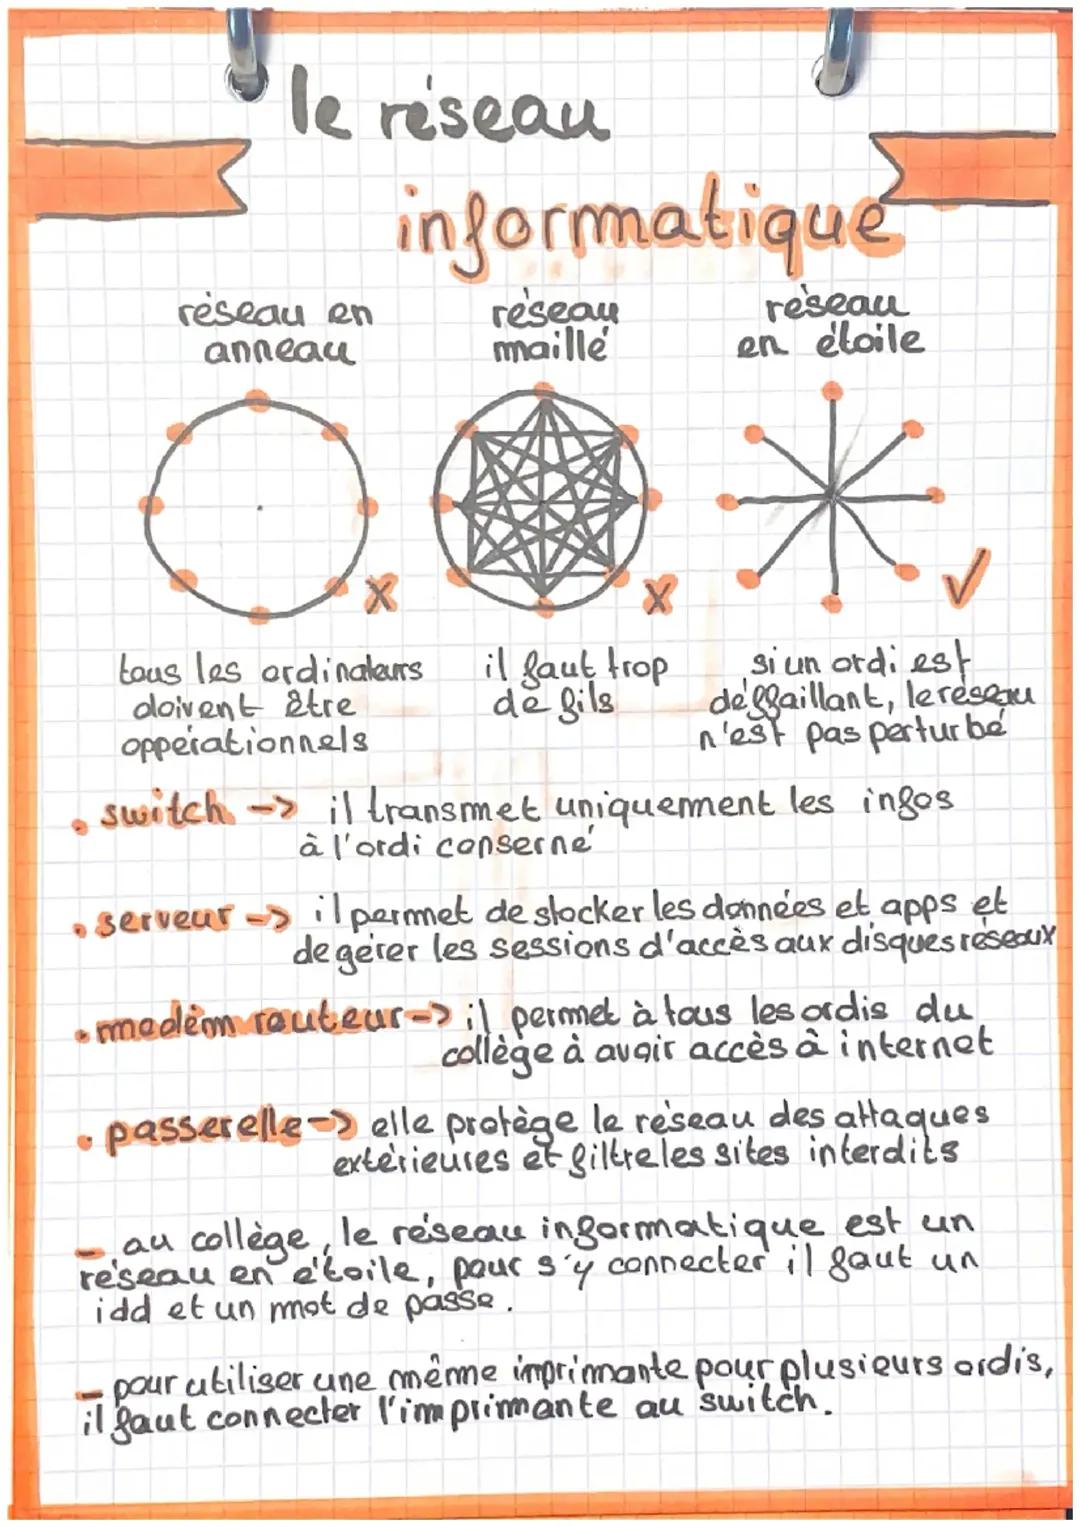 le réseau
informatique
réseau en
anneau
réseau
maillé
réseau
en étoile
x
x
✓
tous les ordinateurs
doivent être
oppérationnels
il faut trop
de fils
si un ordi est
déffaillant, le réseau
n'est pas perturbé
• switch -> il transmet uniquement les infos
à l'ordi conserné
• serveur -> il permet de stocker les données et apps et
de gérer les sessions d'accès aux disques réseaux
• modèm routeur -> il permet à tous les ordis du
collège à avoir accès à internet
• passerelle -> elle protège le réseau des attaques
extérieures et filtre les sites interdits
- au collège, le réseau informatique est un
réseau en étoile, pour s'y connecter il faut un
idd et un mot de passe.
- pour utiliser une même imprimante pour plusieurs ordis,
il faut connecter l'imprimante au switch.